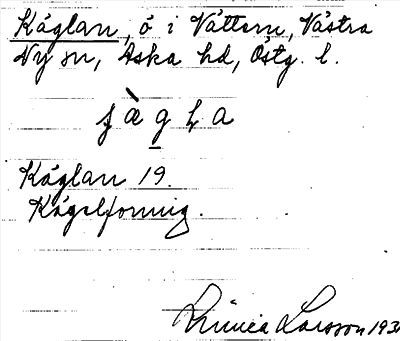 Käglan, ö i Vättern, Västra
Ny sn, Aska hd, Östg. l.
Käglan 19.
Kägelformig.
Linnea Larsson 193